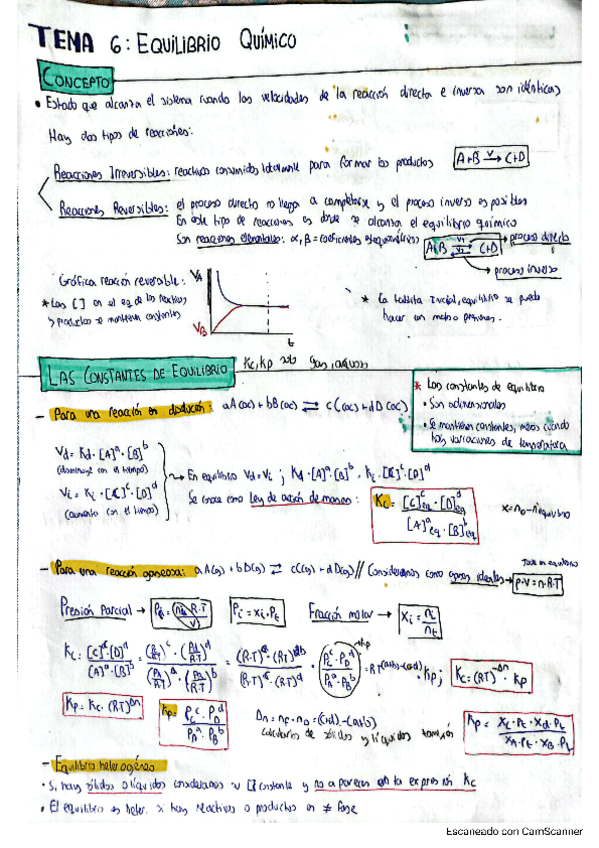 TEMA 6: EQUILIBRIO QUÍMICO
CONCEPTO
• Estado que alcanza el sistema cuando las velocidades de la reacción directa e inversa son idénticas
Hay dos tipos de reacciones:
Reacciones Irreversibles: reactivos consumidos totalmente para formar los productos A+B →v C+D
Reacciones Reversibles: el proceso directo no llega a completarse y el proceso inverso es posible
En este tipo de reacciones es donde se alcanza el equilibrio químico
Son reacciones elementales: α, β = coeficientes estequiométricos A+B ⇄ C+D → proceso directo
→ proceso inverso
Gráfica reacción reversible: VA
* Las [ ] en el eq de los reactivos
y productos se mantienen constantes
VB
t
* La tablita Inicial, equilibrio se puede
hacer con moles o presiones.
LAS CONSTANTES DE EQUILIBRIO
Kc, Kp solo gas, acuosos
* Las constantes de equilibrio
• Son adimensionales
• Se mantienen constantes, menos cuando
hay variaciones de temperatura
- Para una reacción en disolución: aA(ac) + bB(ac) ⇄ cC(ac) + dD(ac)
Vd = Kd · [A]^a · [B]^b
(disminuye con el tiempo)
Vi = Ki · [C]^c · [D]^d
(aumenta con el tiempo)
En equilibrio Vd = Vi ; Kd · [A]^a · [B]^b = Ki · [C]^c · [D]^d
Se conoce como Ley de acción de masas: Kc = [C]^c eq · [D]^d eq / [A]^a eq · [B]^b eq
x = n₀ - n equilibrio
- Para una reacción gaseosa: aA(g) + bB(g) ⇄ cC(g) + dD(g) // Consideramos como gases ideales → P·V = n·R·T
Presión Parcial → Pi = ni · R·T / V Pi = xi · Pt Fracción molar → xi = ni / nt
Kc = [C]^c · [D]^d / [A]^a · [B]^b
Pc^c · PD^d / PA^a · PB^b
· Kp ; Kc = (RT)^-Δn · Kp
Kp = Kc · (RT)^Δn
Kp = Pc^c · PD^d / PA^a · PB^b
Δn = np - nr = (c+d) - (a+b)
Kp = xc · Pt · xd · Pt / xA · Pt · xB · Pt
- Equilibrio heterogéneo
• Si hay sólidos o líquidos consideramos su [ ] constante y no aparecen en la expresión Kc
• El equilibrio es heter. si hay reactivos o productos en ≠ fase
Escaneado con CamScanner